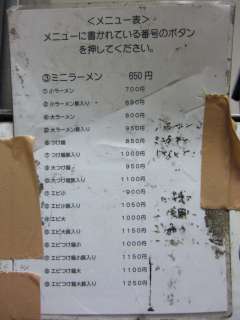 ＜メニュー表＞
メニューに書かれている番号のボタン
を押してください。
③ミニラーメン 650円
小ラーメン 700円
小ラーメン豚入り 850円
大ラーメン 800円
大ラーメン豚入り 950円
つけ麺 850円
つけ麺豚入り 1000円
大つけ麺 950円
大つけ麺豚入り 1100円
エビ小 900円
エビ小豚入り 1050円
エビ大 1000円
エビ大豚入り 1150円
エビつけ麺小 1000円
エビつけ麺小豚入り 1150円
エビつけ麺大 1100円
エビつけ麺大豚入り 1250円